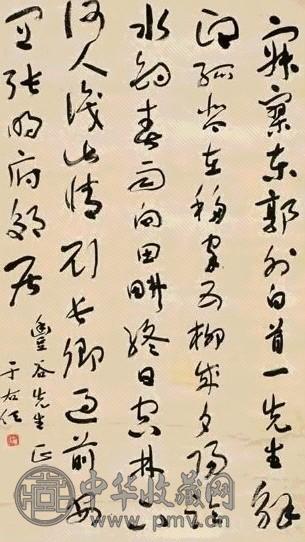 寂寞東郭外白首一先生解
印孤琴在移家五柳成夕陽臨
水釣春雨向田畊終日空林下
何人識此情劉長卿過前安
宜張明府郊居
豐谷先生正
于右任
中华收藏网
www.pmv.cn